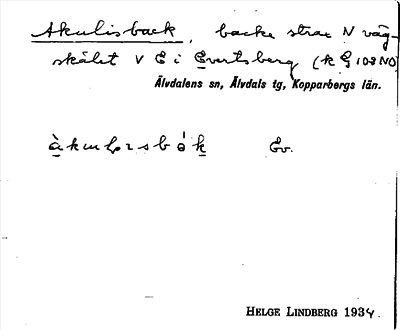 Akulisback, backe strax N väg-
skälet V E i Evertsberg (k G 108 NO)
Älvdalens sn, Älvdals tg, Kopparbergs län.
Ev.
HELGE LINDBERG 1934.